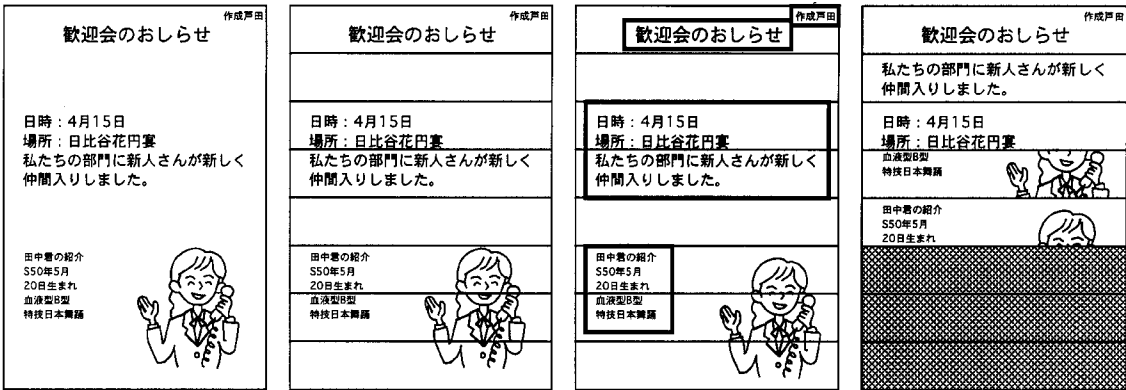 作成戸田
歓迎会のおしらせ
日時：4月15日
場所：日比谷花円宴
私たちの部門に新人さんが新しく
仲間入りしました。
田中君の紹介
S50年5月
20日生まれ
血液型B型
特技日本舞踊
作成戸田
歓迎会のおしらせ
日時：4月15日
場所：日比谷花円宴
私たちの部門に新人さんが新しく
仲間入りしました。
田中君の紹介
S50年5月
20日生まれ
血液型B型
特技日本舞踊
作成戸田
歓迎会のおしらせ
日時：4月15日
場所：日比谷花円宴
私たちの部門に新人さんが新しく
仲間入りしました。
田中君の紹介
S50年5月
20日生まれ
血液型B型
特技日本舞踊
作成戸田
歓迎会のおしらせ
私たちの部門に新人さんが新しく
仲間入りしました。
日時：4月15日
場所：日比谷花円宴
血液型B型
特技日本舞踊
田中君の紹介
S50年5月
20日生まれ